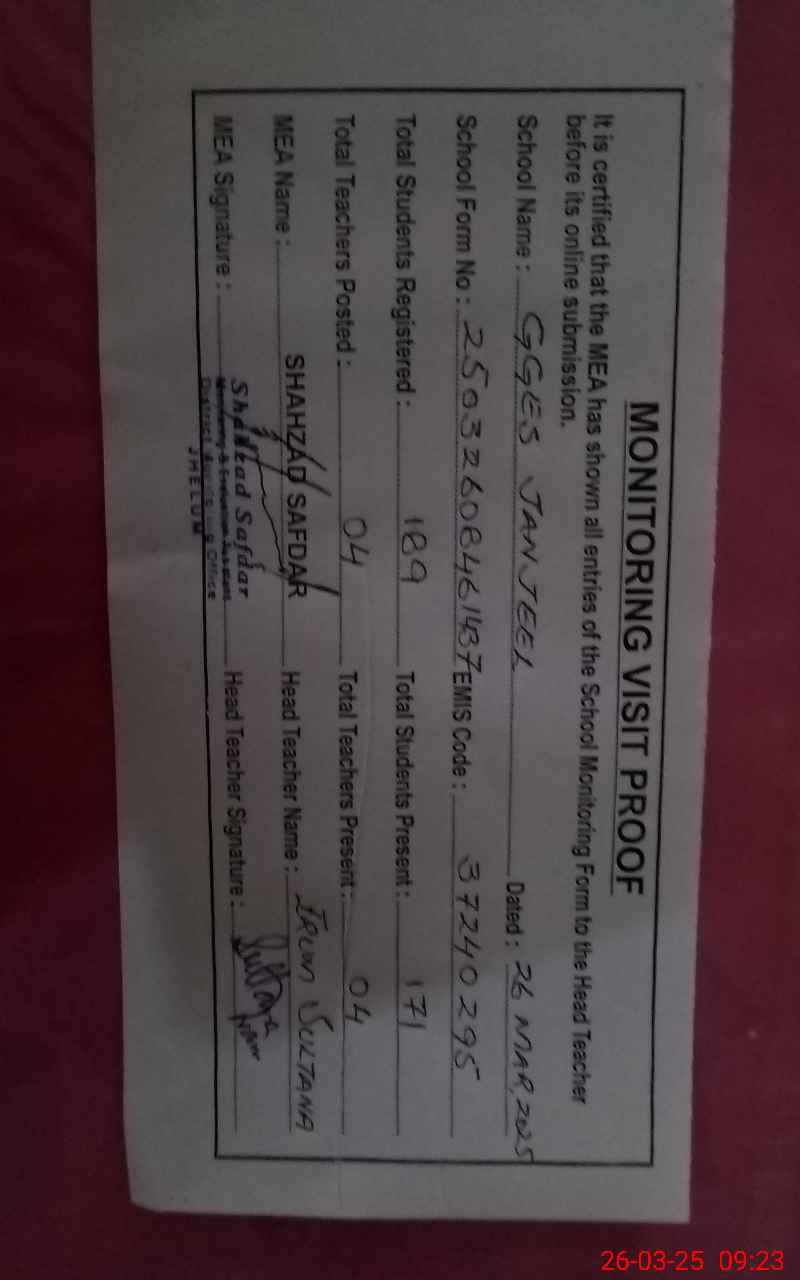 MONITORING VISIT PROOF
It is certified that the MEA has shown all entries of the School Monitoring Form to the Head Teacher
before its online submission.
School Name : GGES JANJEEL Dated : 26 MAR, 2025
School Form No : 25032608461437 EMIS Code : 37240295
Total Students Registered : 189 Total Students Present : 171
Total Teachers Posted : 04 Total Teachers Present : 04
MEA Name : SHAHZAD SAFDAR Head Teacher Name : IRUM SULTANA
MEA Signature : Shahzad Safdar Head Teacher Signature : Sultana
Monitoring & Evaluation Assistant
District Office
JHELUM
26-03-25 09:23